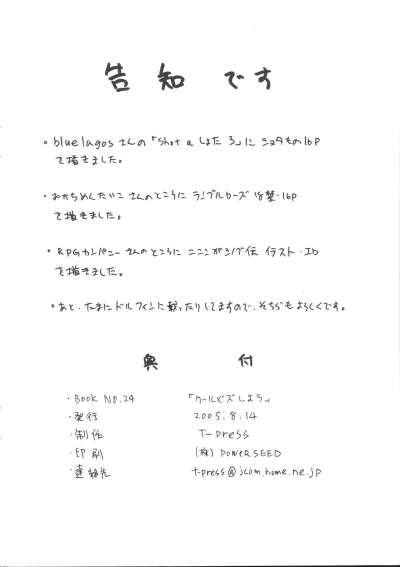 告知です
・bluelagosさんの「Shot a しよた 3」に ショタもの16P
で描きました。
・おかちめんたいこさんのところに ランブルローズ 16P
で描きました。
・RPGカンパニーさんのところに ここンがシノブ伝 イラスト・1P
を描きました。
・あと、たまにドルフィンに載ったりしてますので、そちらもよろしくです。
奥付
・BOOK NO.24 「クールビズしよう」
・発行 2005.8.14
・制作 T-press
・印刷 (株) POWER SEED
・連絡先 t-press@jcom.home.ne.jp